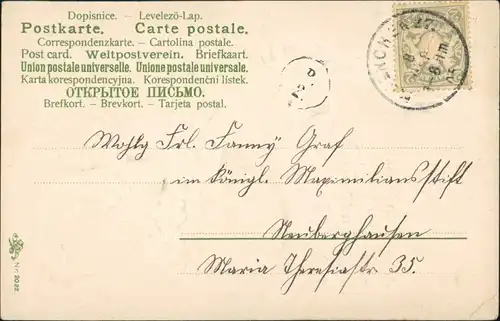 Dopisnice. – Levelezö-Lap.
Postkarte. Carte postale.
Correspondenzkarte. – Cartolina postale.
Post card. Weltpostverein. Briefkaart.
Union postale universelle. Unione postale universale.
Karta korespondencyjna. Korespondenční lístek.
ОТКРЫТОЕ ПИСЬМО.
Brefkort. – Brevkort. – Tarjeta postal.
Wohlg Frl. Fanny Graf
im Königl. Maximiliansstift
Neuberghausen
Maria Theresiastr 35.
Nr. 2022